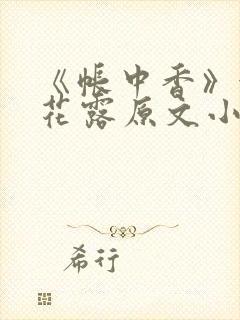 《帐中香》
花露原文小
希行